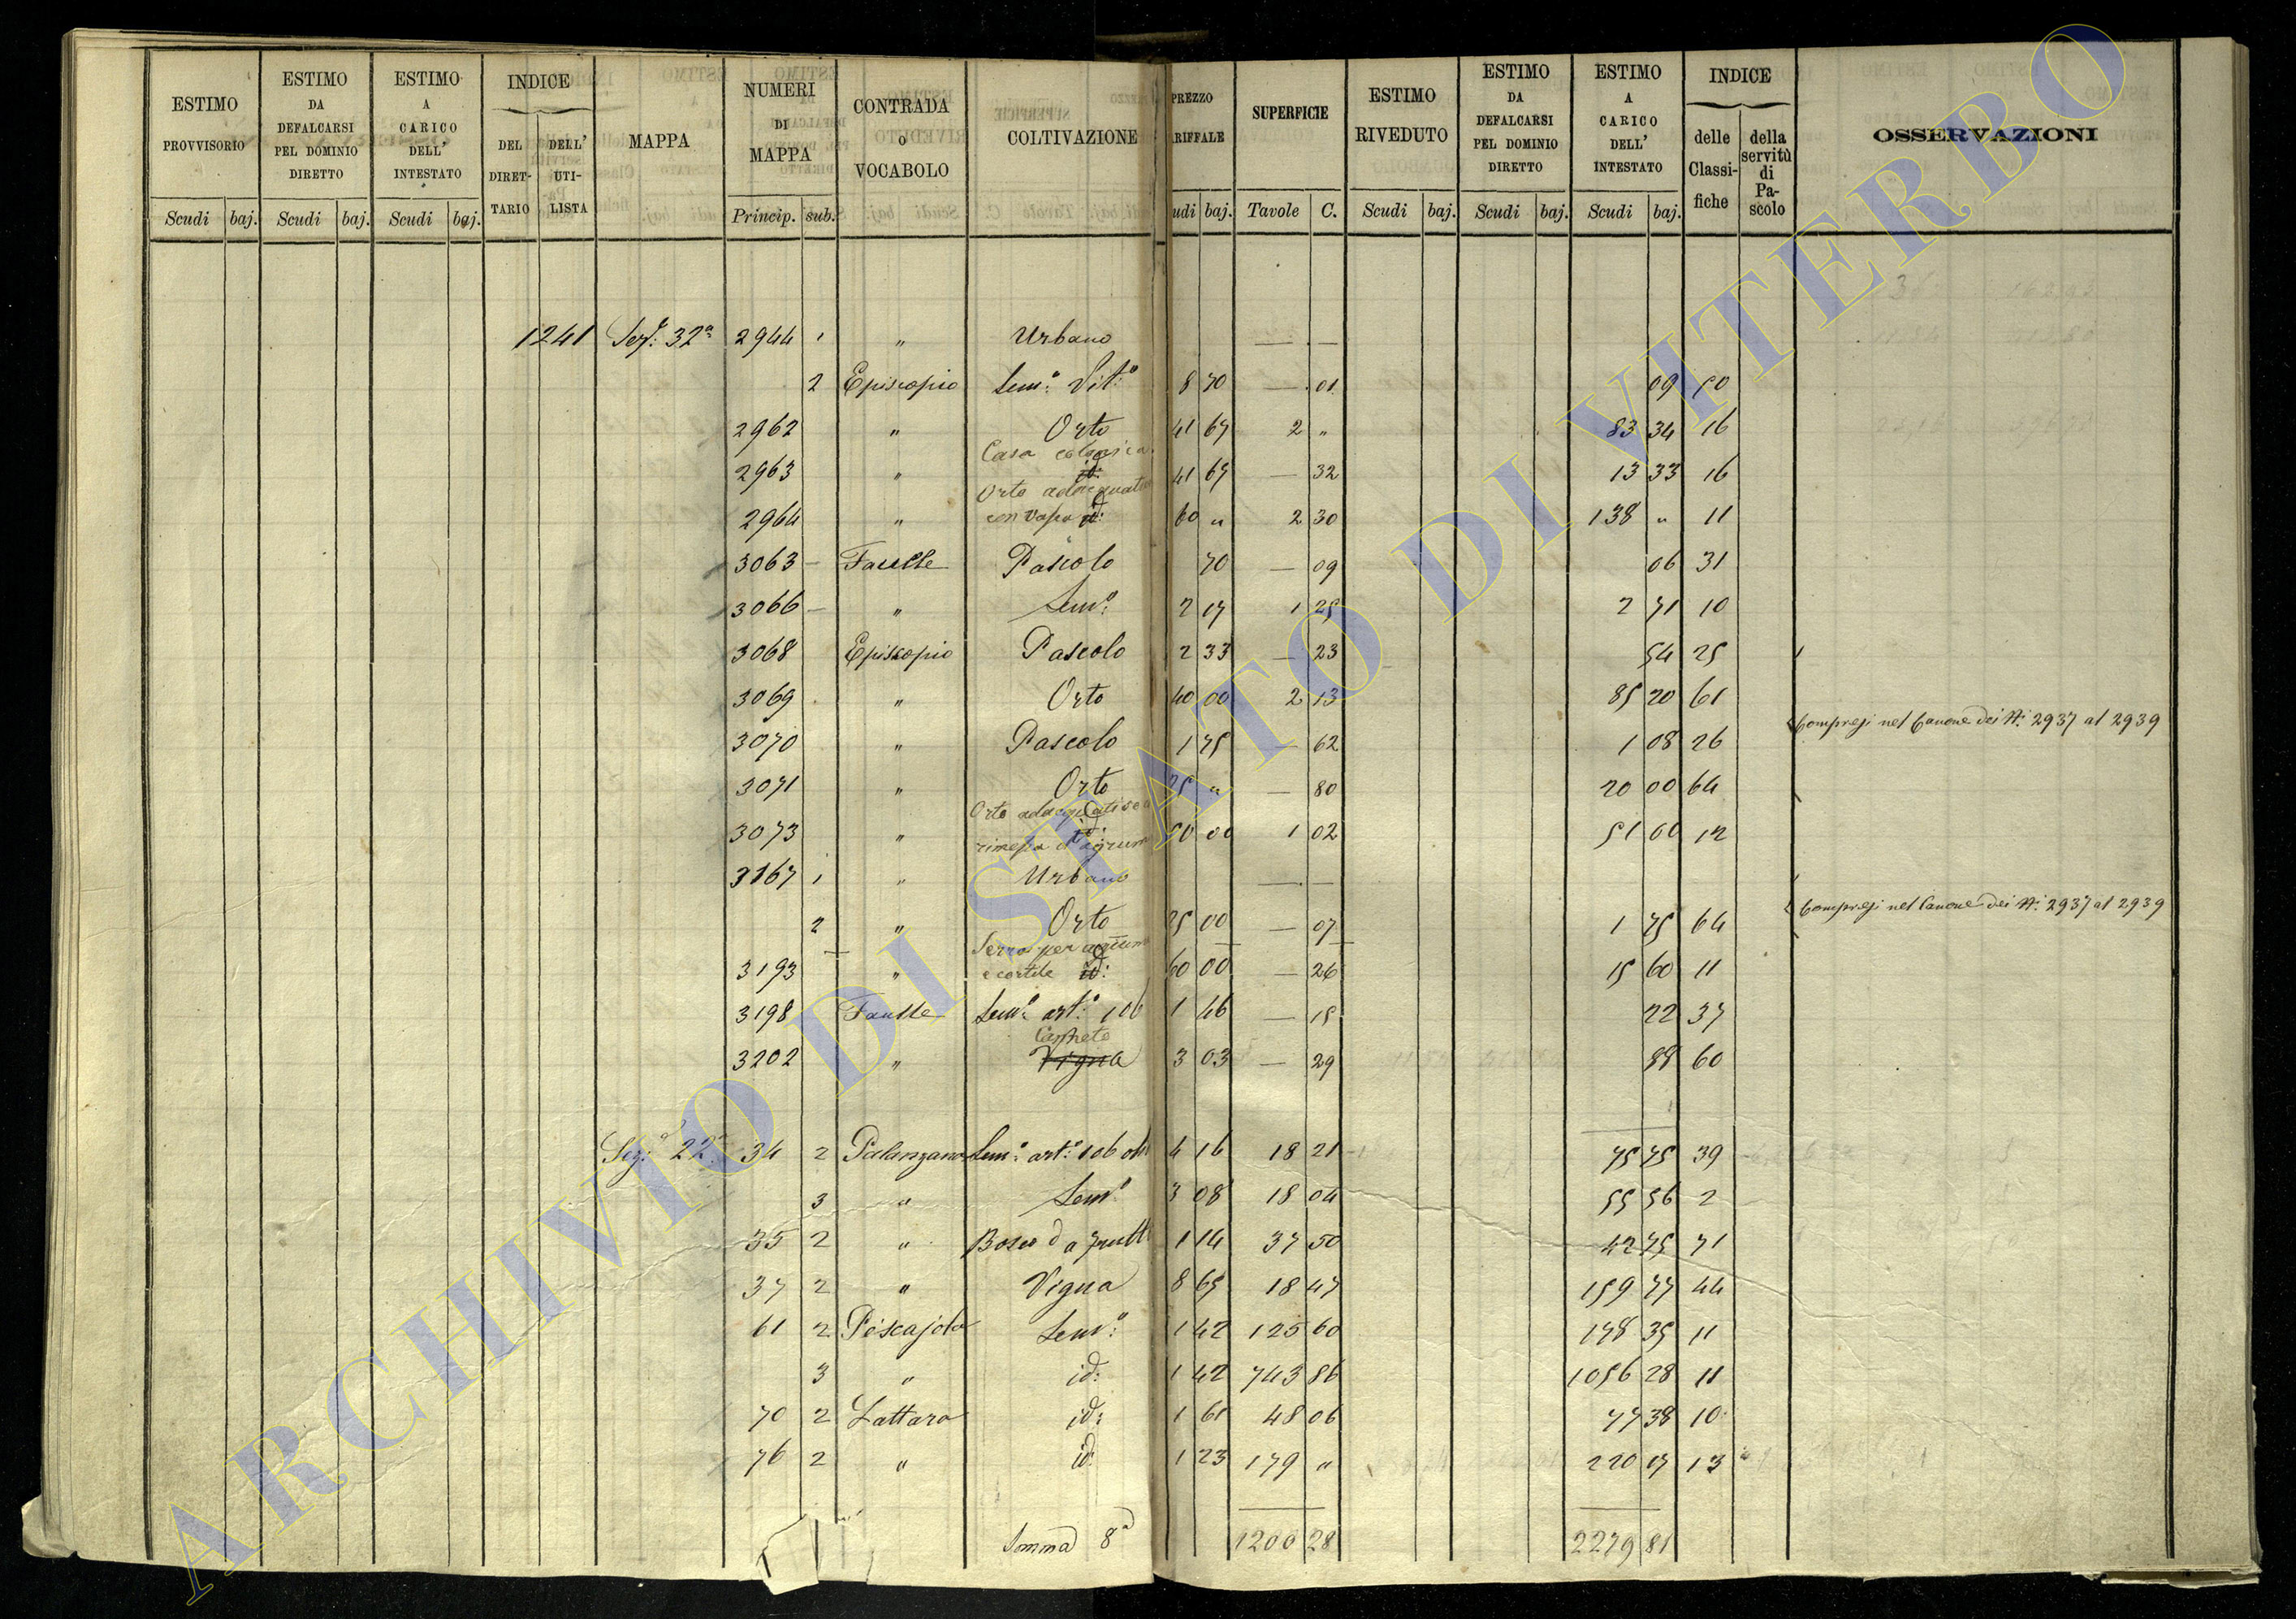 ESTIMO PROVVISORIO | ESTIMO DA DEFALCARSI PEL DOMINIO DIRETTO | ESTIMO A CARICO DELL' INTESTATO | INDICE DEL DIRET-TARIO | DELL' UTI-LISTA | MAPPA | NUMERI DI MAPPA | CONTRADA o VOCABOLO | COLTIVAZIONE | PREZZO RIFFALE | SUPERFICIE | ESTIMO RIVEDUTO | ESTIMO DA DEFALCARSI PEL DOMINIO DIRETTO | ESTIMO A CARICO DELL' INTESTATO | INDICE delle Classi-fiche | della servitù di Pa-scolo | OSSERVAZIONI
Scudi | baj. | Scudi | baj. | Scudi | baj. | Princip. | sub. | udi | baj. | Tavole | C. | Scudi | baj. | Scudi | baj. | Scudi | baj.
1241 Sez.e 32a 2944 1 " Urbano — —
2 Episcopio Sem.o Vit.o 8 70 — 01 09 50
2962 " Orto 41 67 2 " 83 34 16
Casa colonica
2963 " id: 41 67 — 32 13 33 16
Orto adacquativo
2964 " con vasca id: 60 " 2 30 138 " 11
3063 — Faulle Pascolo 70 — 09 06 31
3066 — " Sem.o 2 17 1 25 2 71 10
3068 Episcopio Pascolo 2 33 — 23 54 25
3069 " Orto 40 00 2 13 85 20 61
Compresi nel Canone dei N.i 2937 al 2939
3070 " Pascolo 1 75 — 62 1 08 26
3071 " Orto 25 " — 80 20 00 64
Orto
3073 " rimessa d'agrumi id: 50 00 1 02 51 00 12
3167 1 " Urbano — —
Compresi nel Canone dei N.i 2937 al 2939
2 " Orto 25 00 — 07 1 75 64
Serra per agrumi
3193 " e cortile id: 60 00 — 26 15 60 11
3198 Faulle Sem.o art.o 106 1 46 — 15 22 37
Canneto
3202 " Vigna 3 03 — 29 88 60
Sez.e 22a 34 2 Palanzano Sem.o art.o 106 4 16 18 21 75 75 39
3 " Sem.o 3 08 18 04 55 56 2
35 2 " Bosco da frutto 1 14 37 50 42 75 71
37 2 " Vigna 8 65 18 47 159 77 44
61 2 Pescajola Sem.o 1 42 125 60 178 35 11
3 " id: 1 42 743 86 1056 28 11
70 2 Lattara id: 1 61 48 06 77 38 10
76 2 " id: 1 23 179 " 220 17 13
Somma 8a 1200 28 2279 81
ARCHIVIO DI STATO DI VITERBO